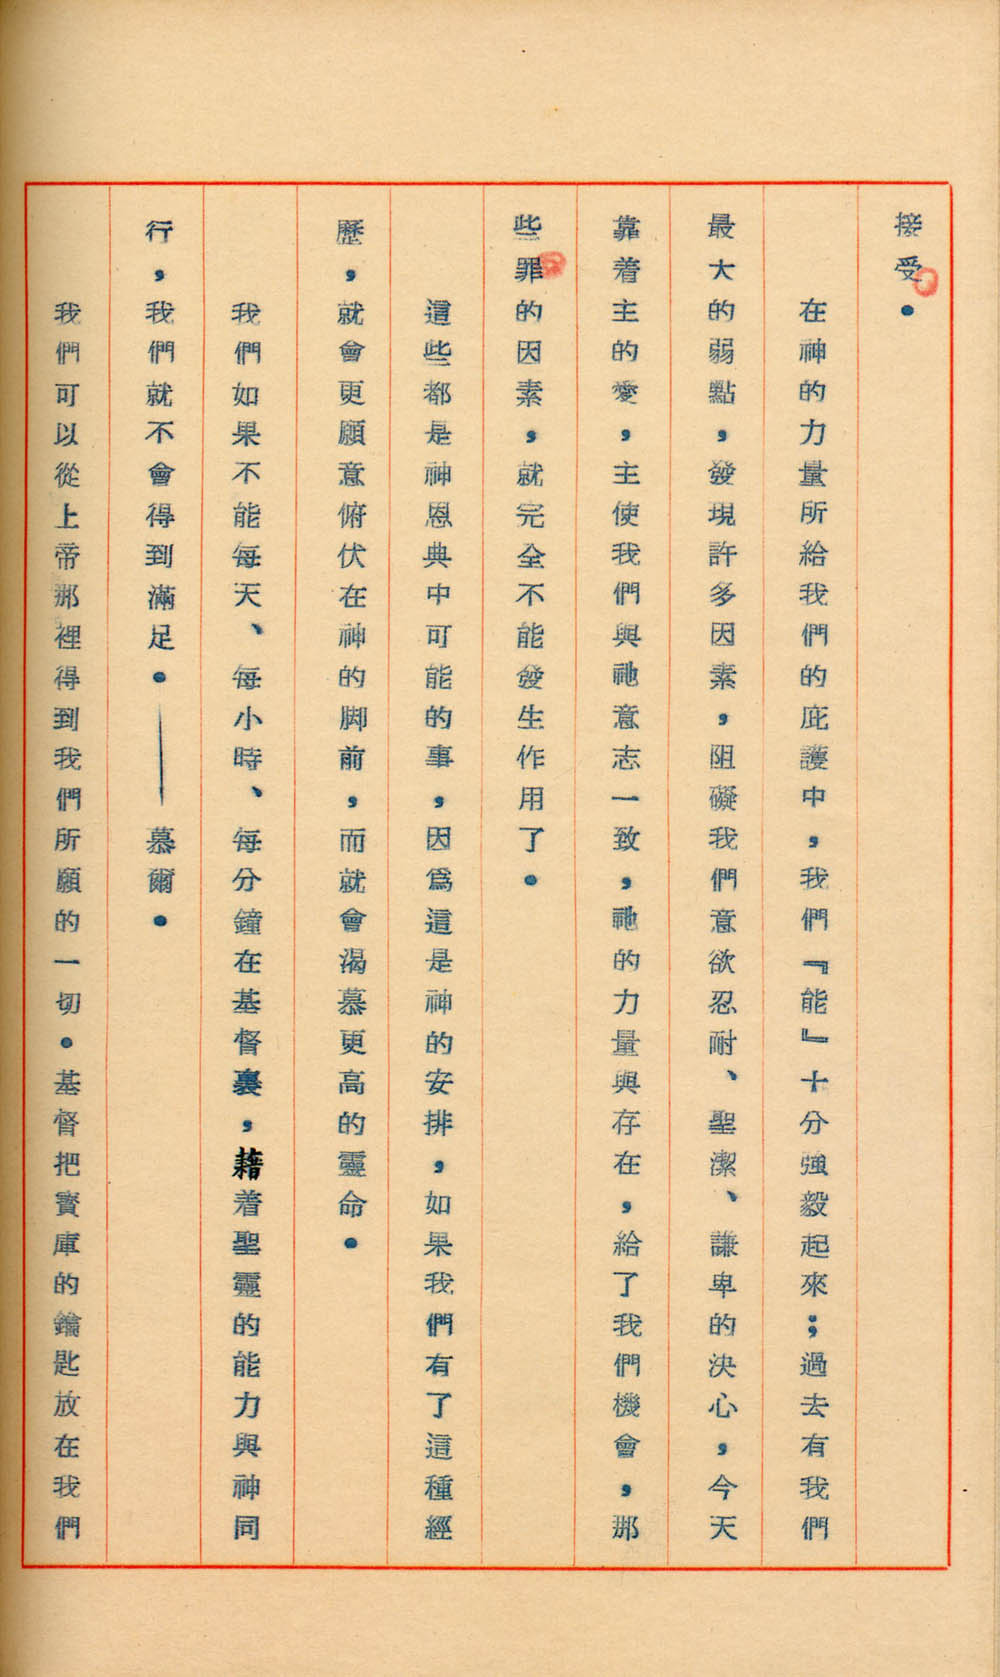 接受。
在神的力量所給我們的庇護中，我們『能』十分強毅起來；過去有我們
最大的弱點，發現許多因素，阻礙我們意欲忍耐、聖潔、謙卑的決心，今天
靠着主的愛，主使我們與祂意志一致，祂的力量與存在，給了我們機會，那
些罪的因素，就完全不能發生作用了。
這些都是神恩典中可能的事，因爲這是神的安排，如果我們有了這種經
歷，就會更願意俯伏在神的脚前，而就會渴慕更高的靈命。
我們如果不能每天、每小時、每分鐘在基督裏，藉着聖靈的能力與神同
行，我們就不會得到滿足。——慕爾。
我們可以從上帝那裡得到我們所願的一切。基督把寳庫的鑰匙放在我們